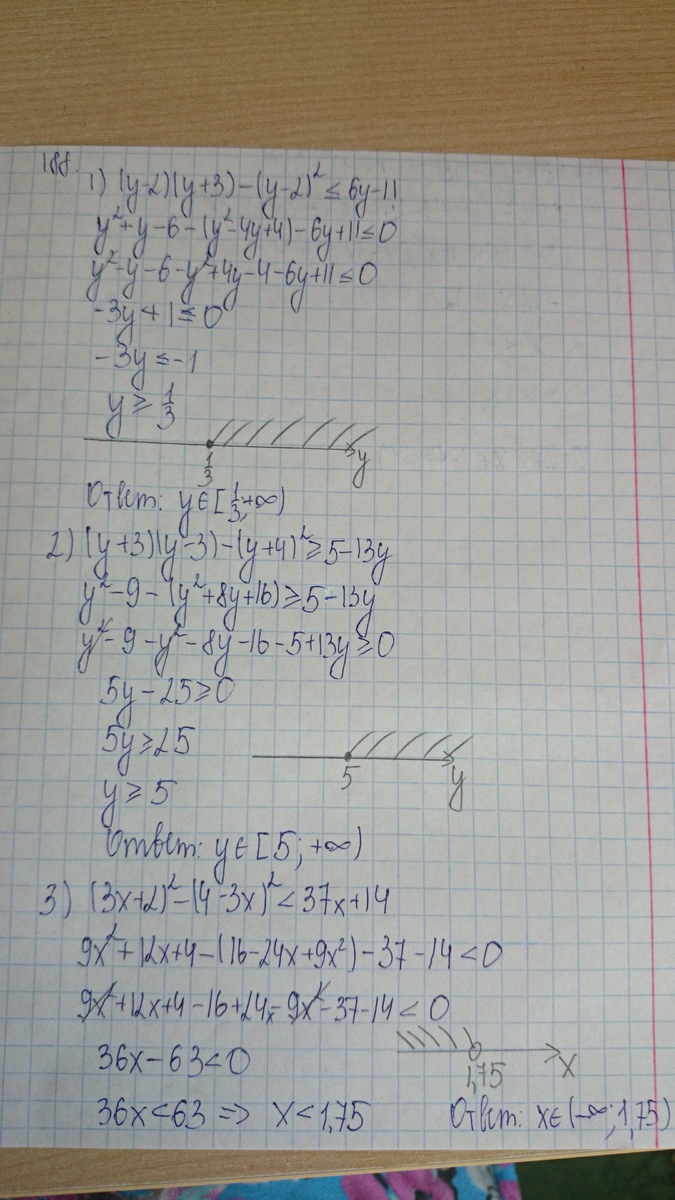 188.
1) (y-2)(y+3)-(y-2)² ≤ 6y-11
y²+y-6-(y²-4y+4)-6y+11≤0
y²-y-6-y²+4y-4-6y+11≤0
-3y+1≤0
-3y≤-1
y≥ 1/3
1/3 y
Ответ: y∈[1/3;+∞)
2) (y+3)(y-3)-(y+4)²≥5-13y
y²-9-(y²+8y+16)≥5-13y
y²-9-y²-8y-16-5+13y≥0
5y-25≥0
5y≥25
5 y
y≥5
Ответ: y∈[5;+∞)
3) (3x+2)²-(4-3x)²<37x+14
9x²+12x+4-(16-24x+9x²)-37-14<0
9x²+12x+4-16+24x-9x²-37-14<0
36x-63<0
1,75 x
36x<63 => x<1,75 Ответ: x∈(-∞;1,75)